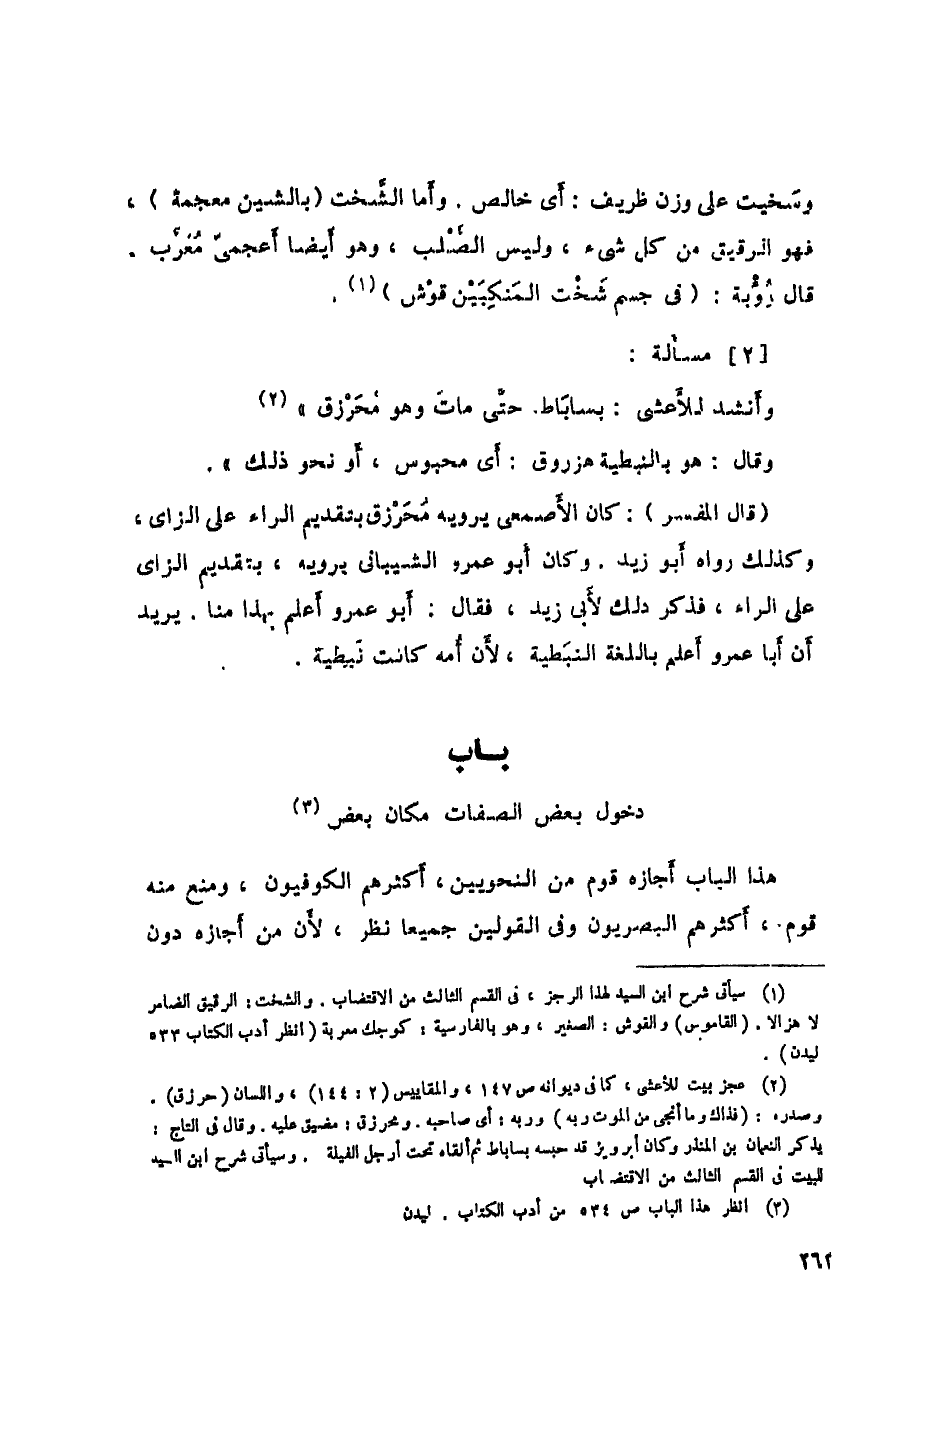 وسَخيت على وزن ظريف : أى خالص . وأما الشَّخت (بالشين معجمة ) ،
فهو الرقيق من كل شىء ، وليس الصُّلب ، وهو أيضا أعجمىّ مُعَرَّب .
قال رُؤْبة : ( فى جسم شَخْت المَنكِبَيْن قوْش ) (١) .
[٢] مسألة :
وأنشد للأَعشى : بسابَاط. حتَّى ماتَ وهو مُحَرْزق » (٢)
وقال : هو بالنبطية هزروق : أى محبوس ، أو نحو ذلك » .
(قال المفسر ) : كان الأَصمعى يرويه مُحَرْزق بتقديم الراء على الزاى ،
وكذلك رواه أبو زيد . وكان أبو عمرو الشيبانى يرويه ، بتقديم الزاى
على الراء ، فذكر ذلك لأَبى زيد ، فقال : أبو عمرو أعلم بهذا منا . يريد
أن أبا عمرو أعلم باللغة النبَطية ، لأَن أُمه كانت نَبِيطية .
بــاب
دخول بعض الصفات مكان بعض (٣)
هذا الباب أجازه قوم من النحويين ، أكثرهم الكوفيون ، ومنع منه
قوم ، أكثرهم البصريون وفى القولين جميعا نظر ، لأَن من أجازه دون
(١) سيأتى شرح ابن السيد لهذا الرجز ، فى القسم الثالث من الاقتضاب . والشخت : الرقيق الضامر
لا هزالا . (القاموس) والقوش : الصغير ، وهو بالفارسية : كوجك معربة ( انظر أدب الكتاب ٥٣٣
ليدن) .
(٢) عجز بيت للأعشى ، كما فى ديوانه ص ١٤٧ ، والمقاييس (٢ : ١٤٤) ، واللسان (حرزق) .
وصدره : (فذاك وما أنجى من الموت ربه ) وربه : أى صاحبه . ومحرزق : مضيق عليه . وقال فى التاج :
يذكر النعمان بن المنذر وكان أبرويز قد حبسه بساباط ثم ألقاه تحت أرجل الفيلة . وسيأتى شرح ابن السيد
للبيت فى القسم الثالث من الاقتضاب
(٣) انظر هذا الباب ص ٥٣٤ من أدب الكتاب . ليدن
٢٦٢